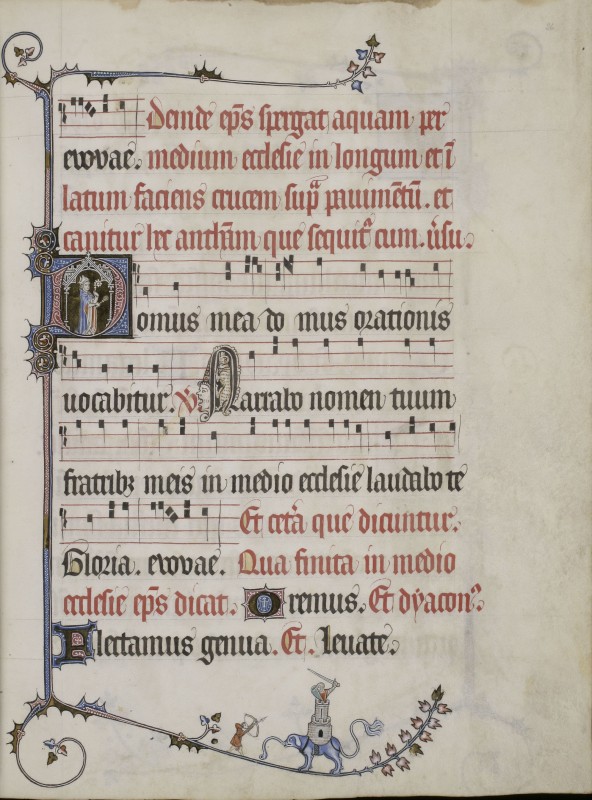 Deinde ep̄s spergat aquam per
evovae. medium ecclesie in longum et ī
latum faciens crucem supᷓ pauimētū. et
canitur hec anthām que sequit᷑ cum. v̉su.
Domus mea do mus orationis
uocabitur. V Narrabo nomen tuum
fratribꝫ meis in medio ecclesie laudabo te
Et cetᷓa que dicuntur.
Gloria. evovae. Qua finita in medio
ecclesie ep̄s dicat. Oremus. Et dyaconꝰ.
Flectamus genua. Et. Leuate.